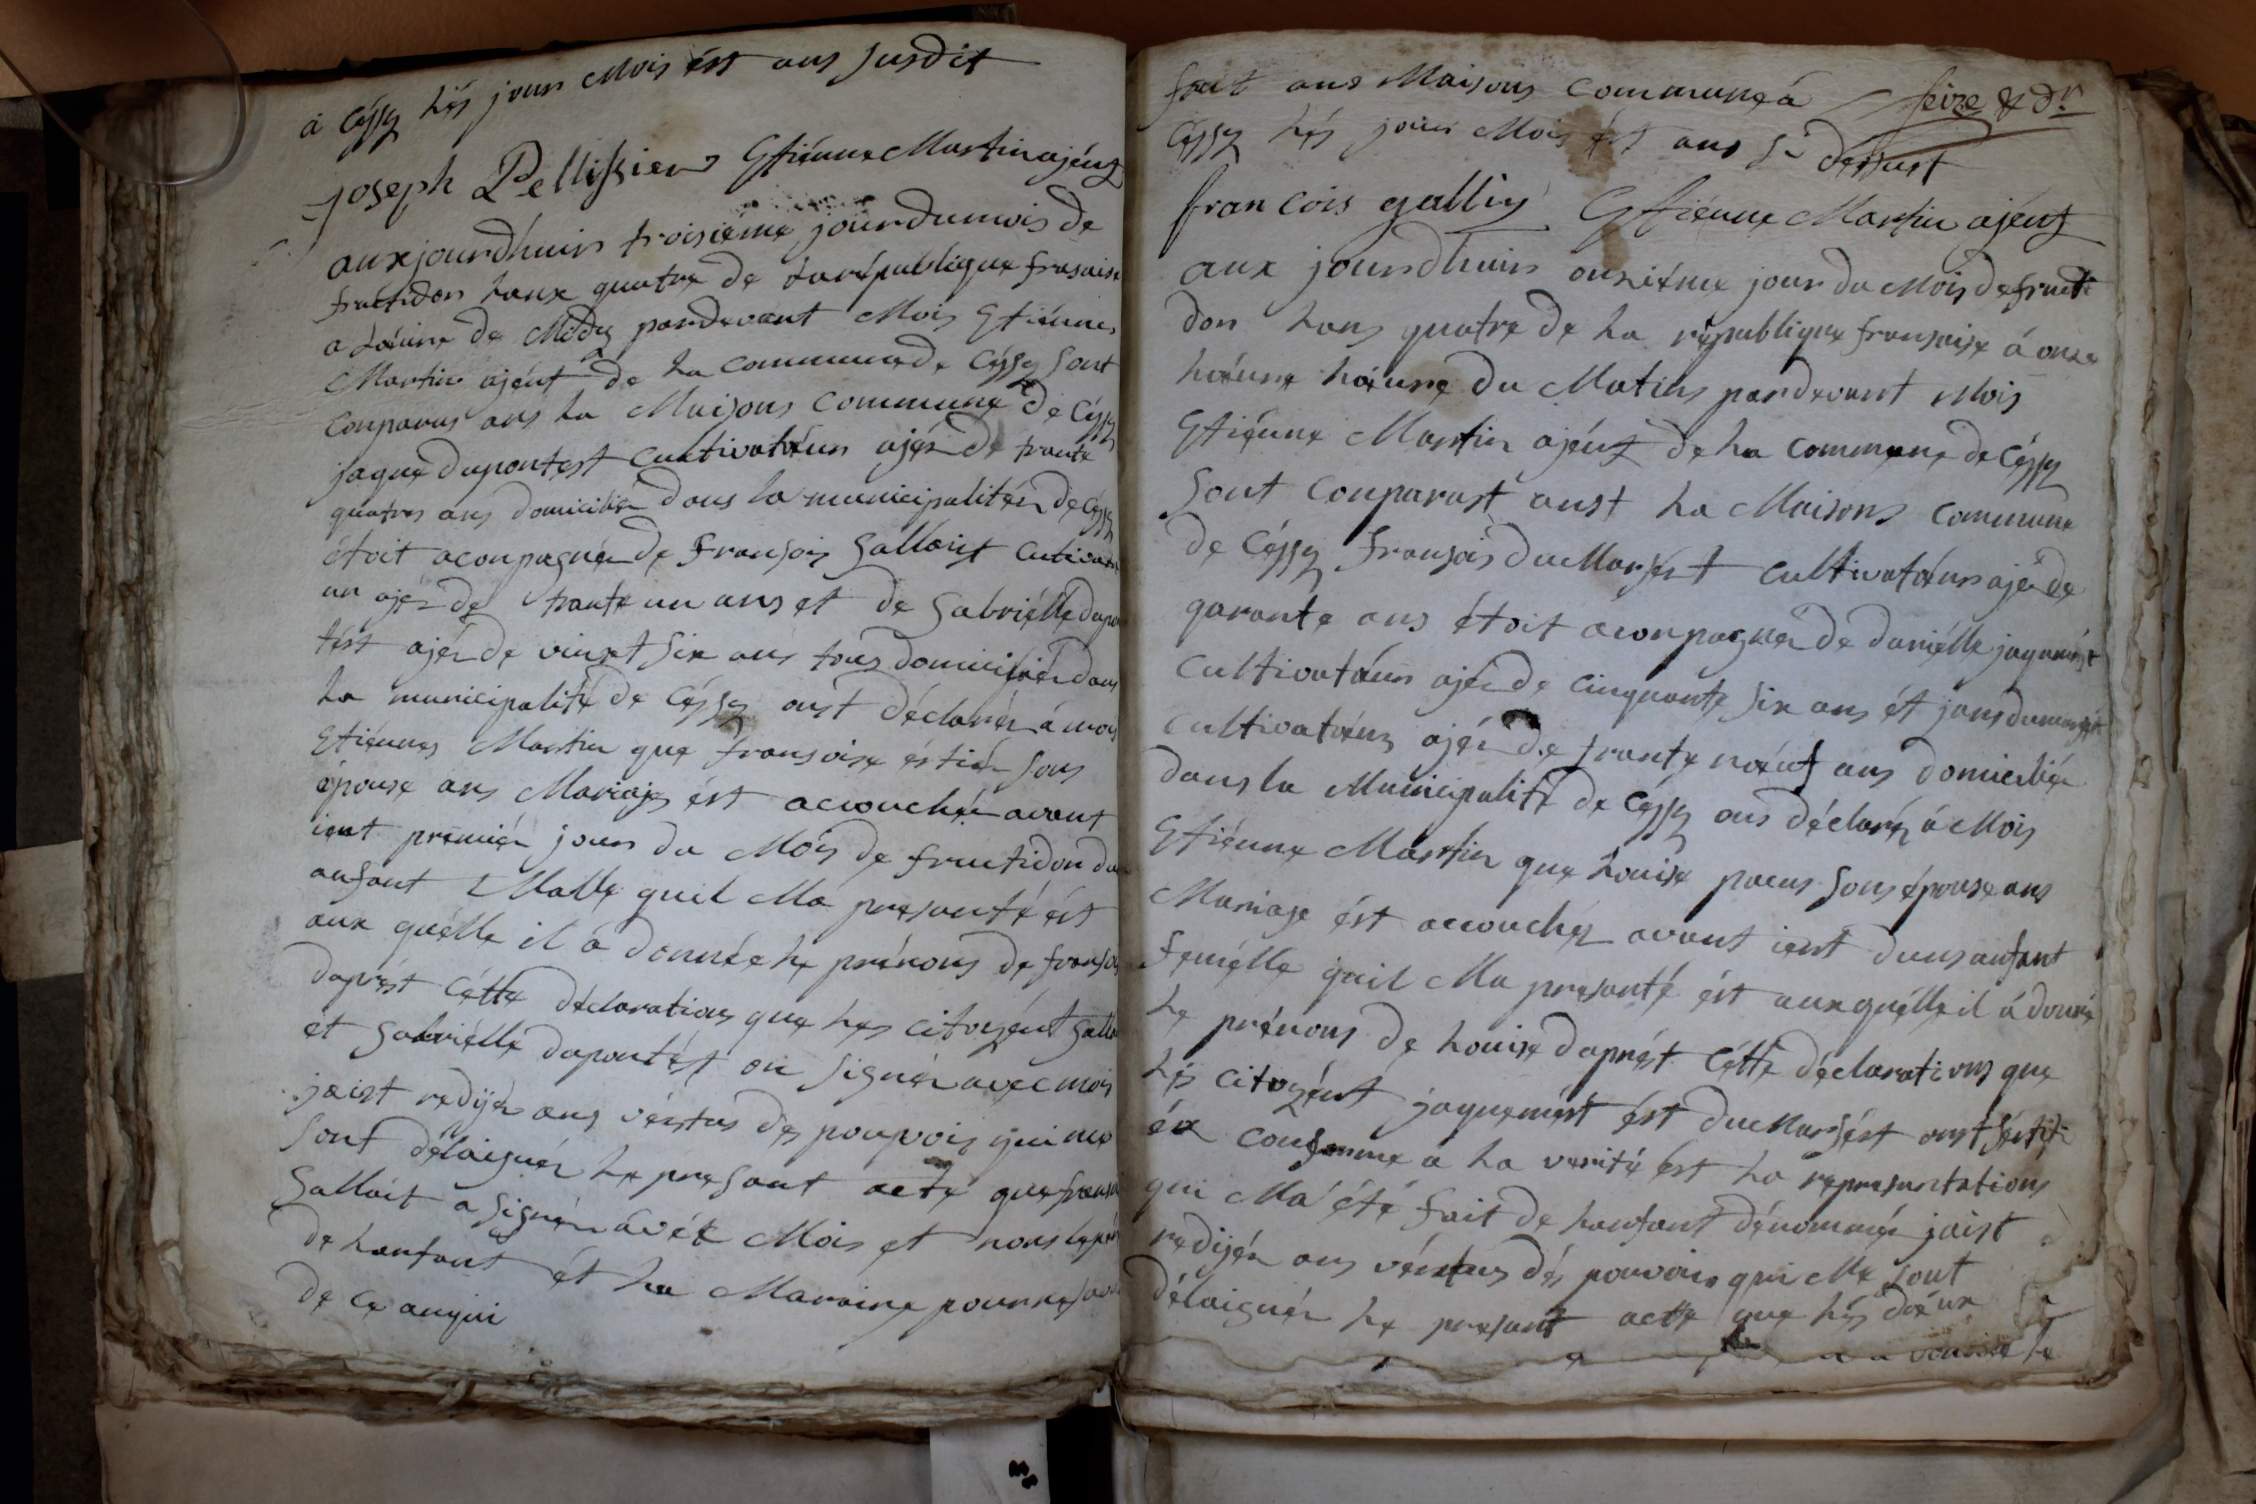 à Céssy lés jour Mois ést ans susdit
Joseph Pellissier Etiénne Martin ajént
aux jourdhuis troisiéme jour du mois de
fructidor lanx quatre de larépublique fransaise
a loeure de Midy pardevant Mois Etiénne
Martin ajént de la commune de Céssy sont
conparus ans la Maisons commune de Céssy
jaque dupontest Cultivatéur ajér de trante
quatres ans domicilier dans la municipalitér de Céssy
étoit aconpagnér de Fransois Gallaist Cutivaté
ur ajér de trante un ans et de Gabriélle dupon
tést ajér de vinxt six ans tous domicilier dans
la municipalité de Céssy onst déclarér á mois
Etiénnes Martin que fransoise éstiér sons
épouse ans Mariajes ést accouchér avant
iert premiér jour du Mois de fructidor dun
anfant Malle quil Ma presanté ést
aux quélle il á donnée le prénons de fransois
daprést Cétte déclarations que les citoyént Gallai
et Gabriélle dupontést on signér avec mois
jaist redijér ans vértus des pouvois qui me
sont délaiguér le presant acte que fransoi
Gallait a signér avék Mois et nons le pér
de lanfant ét la Maraine pour ne savoi
de ce anquis
fait ans Maisons commune á seize & dr
Céssy lés jour Mois ést ans si dessust
francois gallay Etiénne Martin ajént
aux jourdhuis onziéme jour du Mois de fructi
dor lans quatre de la république fransaise á onze
loeure loeure du Matins pardevant Mois
Etiénne Martin ajént de la commune de Céssy
sont conparust anst la Maisons commune
de Céssy fransois duMarsést cultivatéur ajér de
qarante ans étoit aconpagnér de daniélle jaquemést
cultivatéur ajér de cinquante six ans ét jans dumarsést
cultivatéur ajér de trante noeuf ans domicilier
dans la Municipalité de Céssy ons déclarér á Mois
Etiénne Martin que Louise pacus sons épouse ans
Mariage ést accouchér avant iert duns anfant
femélle quil Ma presanté ést aux quélle il á donné
le prénons de Louise daprést Cétte déclarations que
lés citoyént jaquemést ést duMarsést onst sértifi
ér conforme a la verité est la represantations
qui Ma été fait de lanfant dénommér jaist
redijér ans vértus dés pouvois qui Me sont
délaiguér le presant acte que lés doeux